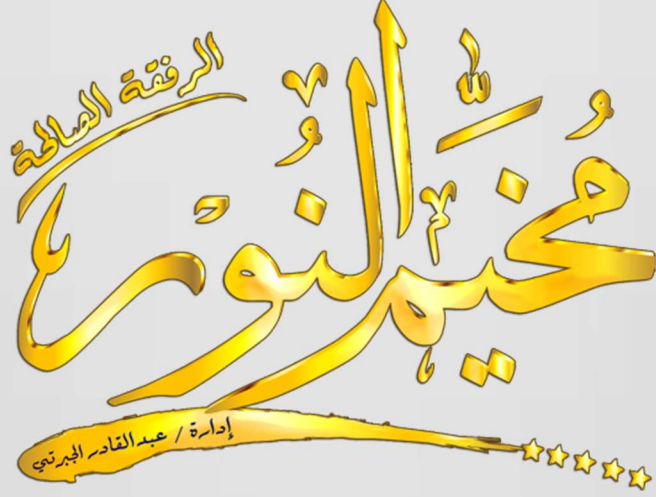 الرفقة الصالحة
مُخيَّم النُوْر
إدارة / عبد القادر الجبرتي